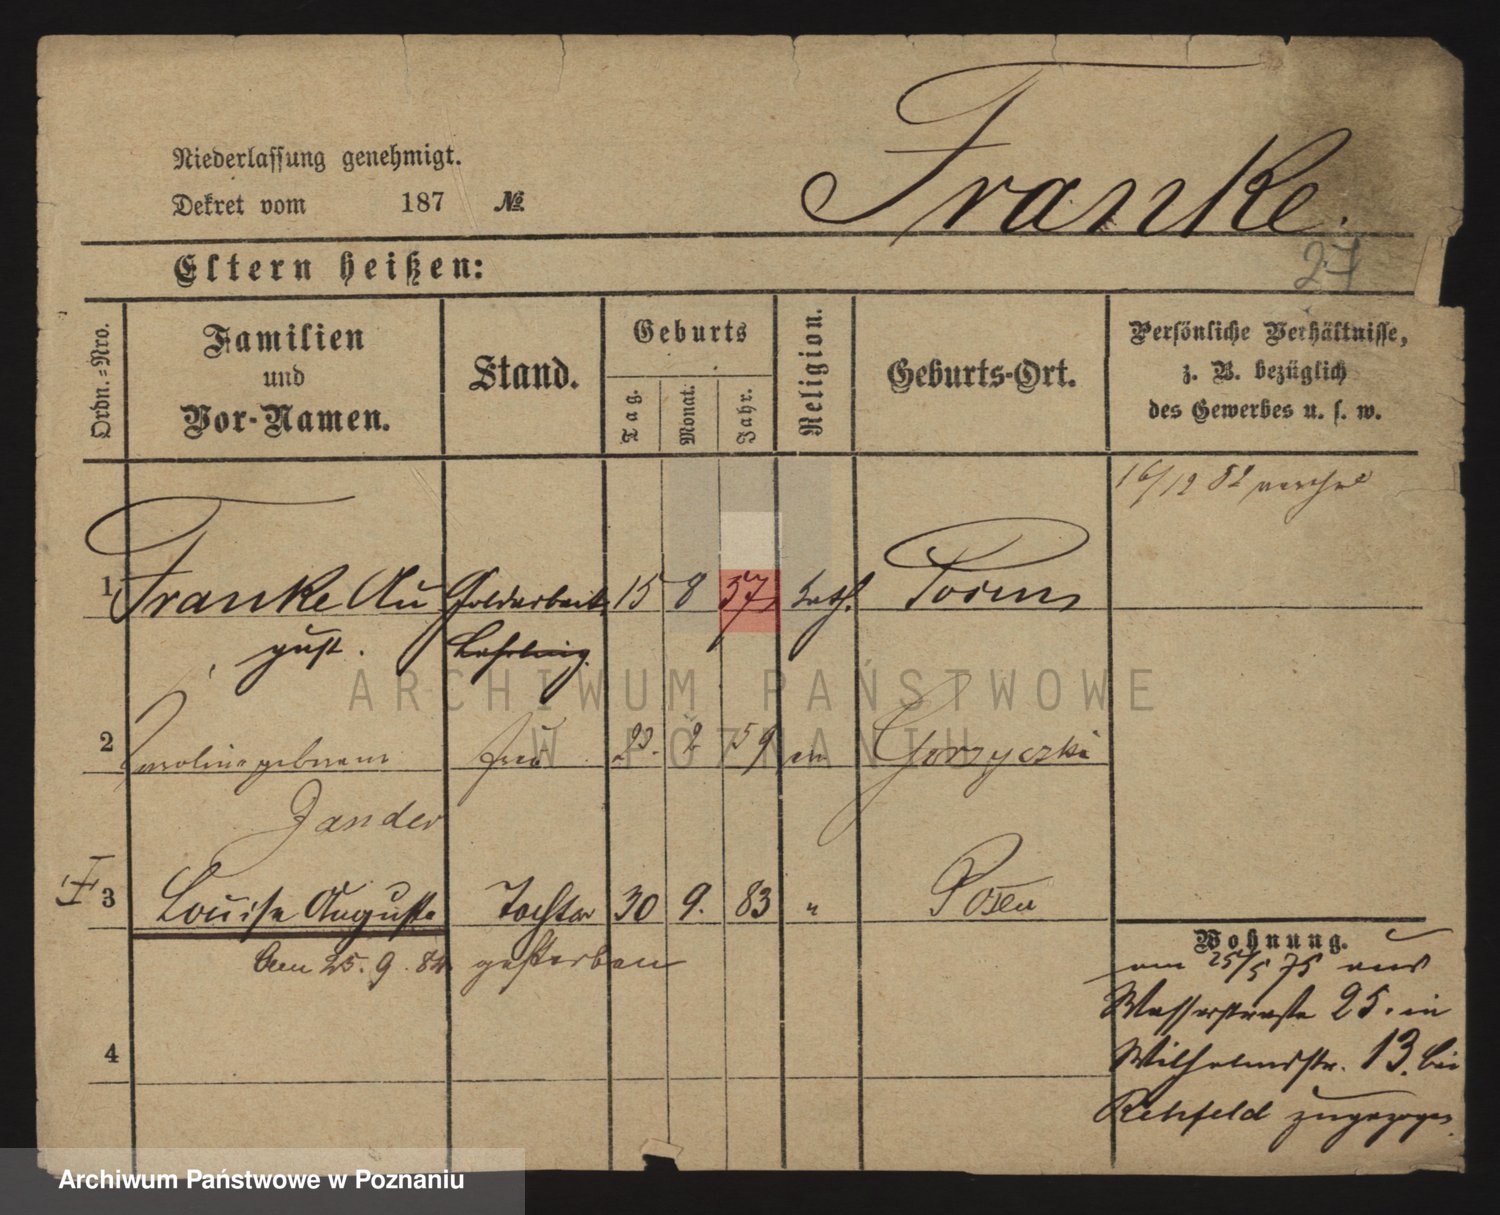 Franke.
Niederlassung genehmigt.
Dekret vom 187 №
27
Eltern heißen:
Ordn.=Nro.
Familien
und
Vor-Namen.
Stand.
Geburts
Tag.
Monat.
Jahr.
Religion.
Geburts-Ort.
Persönliche Verhältnisse,
z. B. bezüglich
des Gewerbes u. s. w.
16/12 82
1 Franke Au Goldarbeit 15 8 57
gust. Lehrling
ARCHIWUM PAŃSTWOWE
W POZNANIU
2 Caroline geborene Frau 23. 2 59 Gorzyczki
Zander
3 Louise Auguste Tochter 30 9. 83 " Posen
Am 25. 9. 84 gestorben
4
Wohnung.
am 25/5 75 aus
Wasserstraße 25. in
Wilhelmsstr. 13. bei
Rehfeld zugezogen.
Archiwum Państwowe w Poznaniu